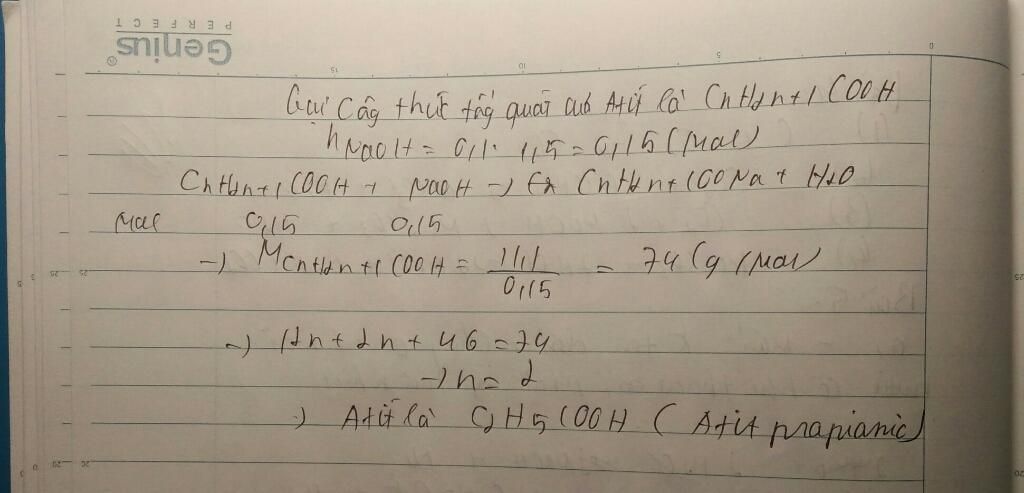 Genius®
PERFECT
0 5 10 15
Gọi Công thức tổng quát của Axit là CnH2n+1COOH
nNaOH = 0,1. 1,5 = 0,15 (Mol)
CnH2n+1COOH + NaOH → CnH2n+1COONa + H2O
Mol 0,15 0,15
→ MCnH2n+1COOH = 11,1 / 0,15 = 74 (g/Mol)
→ 12n + 2n + 46 = 74
→ n = 2
→ Axit là C2H5COOH (Axit propionic)